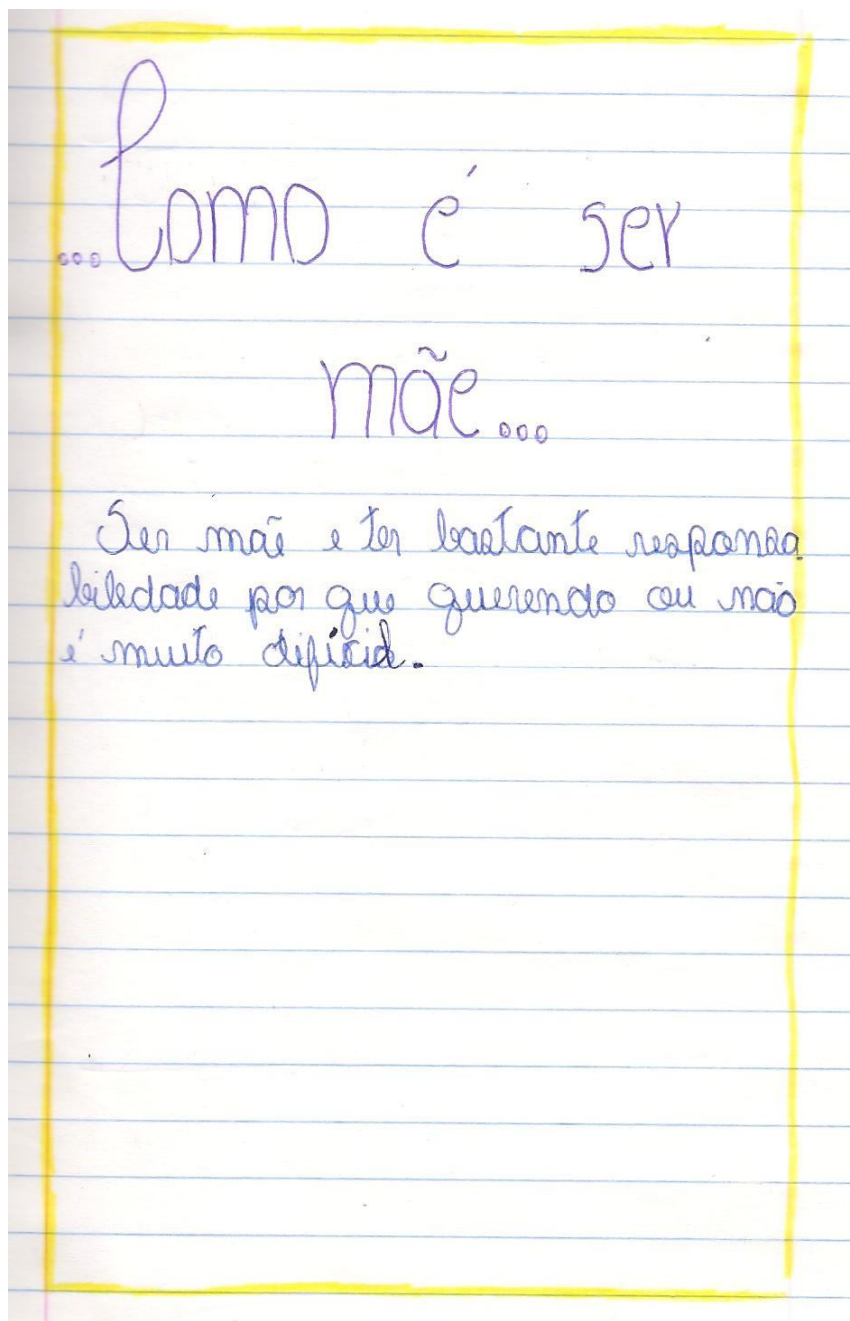 ...Como é ser
mãe...
Ser mãe e ter bastante responsa
bilidade por que querendo ou não
é muito difícil.